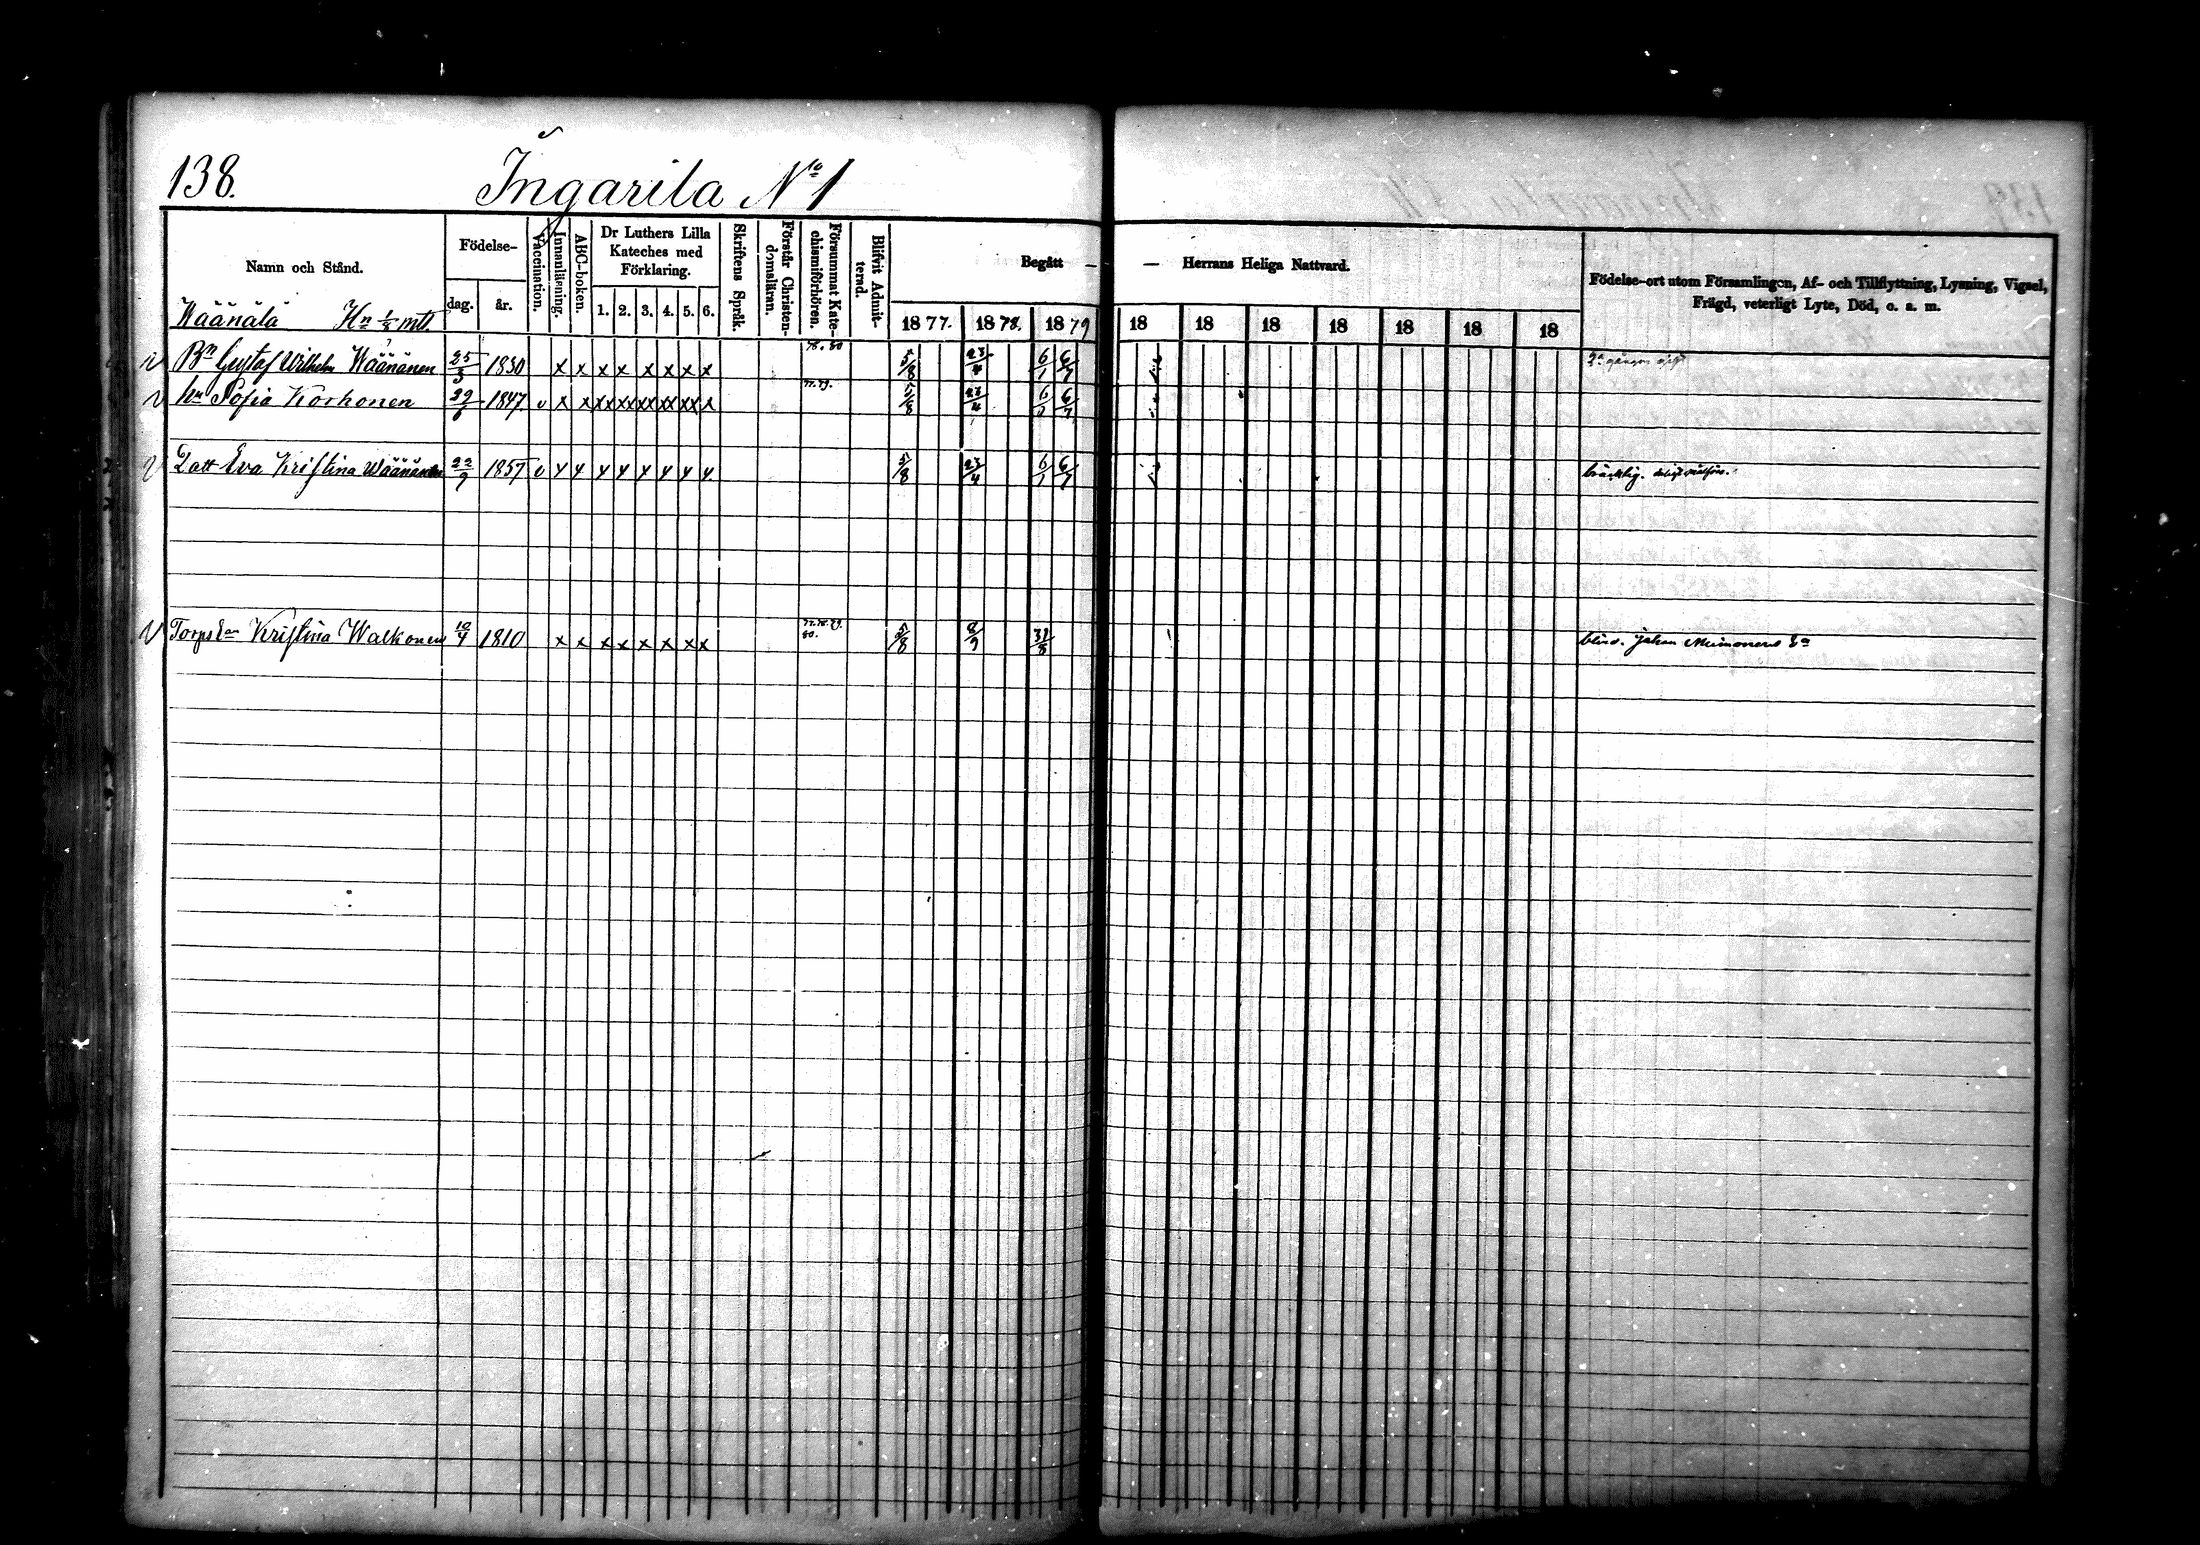 138.
Ingarila No 1
Namn och Stånd.
Födelse-
dag.
år.
Vaccination.
Innanläsning.
ABC-boken.
Dr Luthers Lilla
Kateches med
Förklaring.
1. 2. 3. 4. 5. 6.
Skriftens Språk.
Förstår Christen-
domsläran.
Försummat Kate-
chismiförhören.
Blifvit Admit-
terad.
Begått — — Herrans Heliga Nattvard.
1877. 1878. 1879 18 18 18 18 18 18 18
Födelse-ort utom Församlingen, Af- och Tillflyttning, Lysning, Vigsel,
Frägd, veterligt Lyte, Död, o. a. m.
Wäänälä Hn 1/2 mtl
v Bn Gustaf Wilhelm Wäänänen 25/3 1830 x x x x x x x x 78. 80 5/8 23/4 6/1 6/7
v hu Sofia Korhonen 29/6 1847. v x x xx xx xx xx xx x 77. 79. 5/8 23/4 6/1 6/7
v Dott Eva Kristina Wäänänen 22/9 1857 v x x x x x x x x 5/8 23/4 6/1 6/7 bräcklig.
v Torps Ea Kristina Walkonen 10/4 1810 x x x x x x x x 77. 78. 79. 80. 5/8 8/9 31/8 blind. Johan Ea